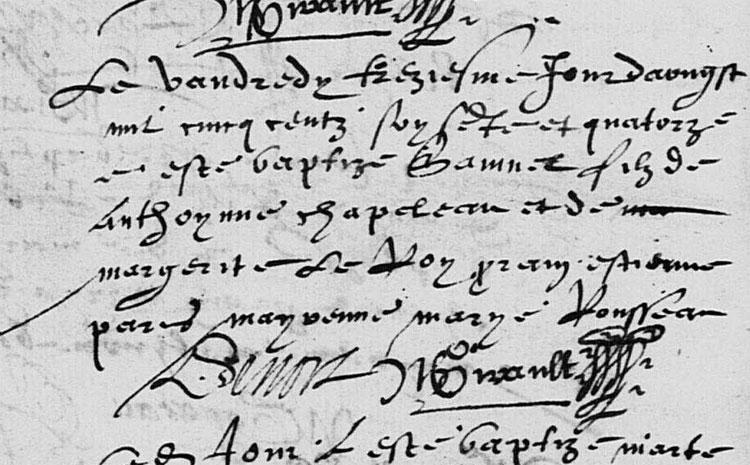 Le vandredy treziesme Jour daougst
mil cincq centz soysente et quatorze
a este baptize Samuel filz de
Anthoynne chapeleau et de
margerite Le Roy prain estienne
pares mayrenne marye Rousseau
Jour a este baptize marte